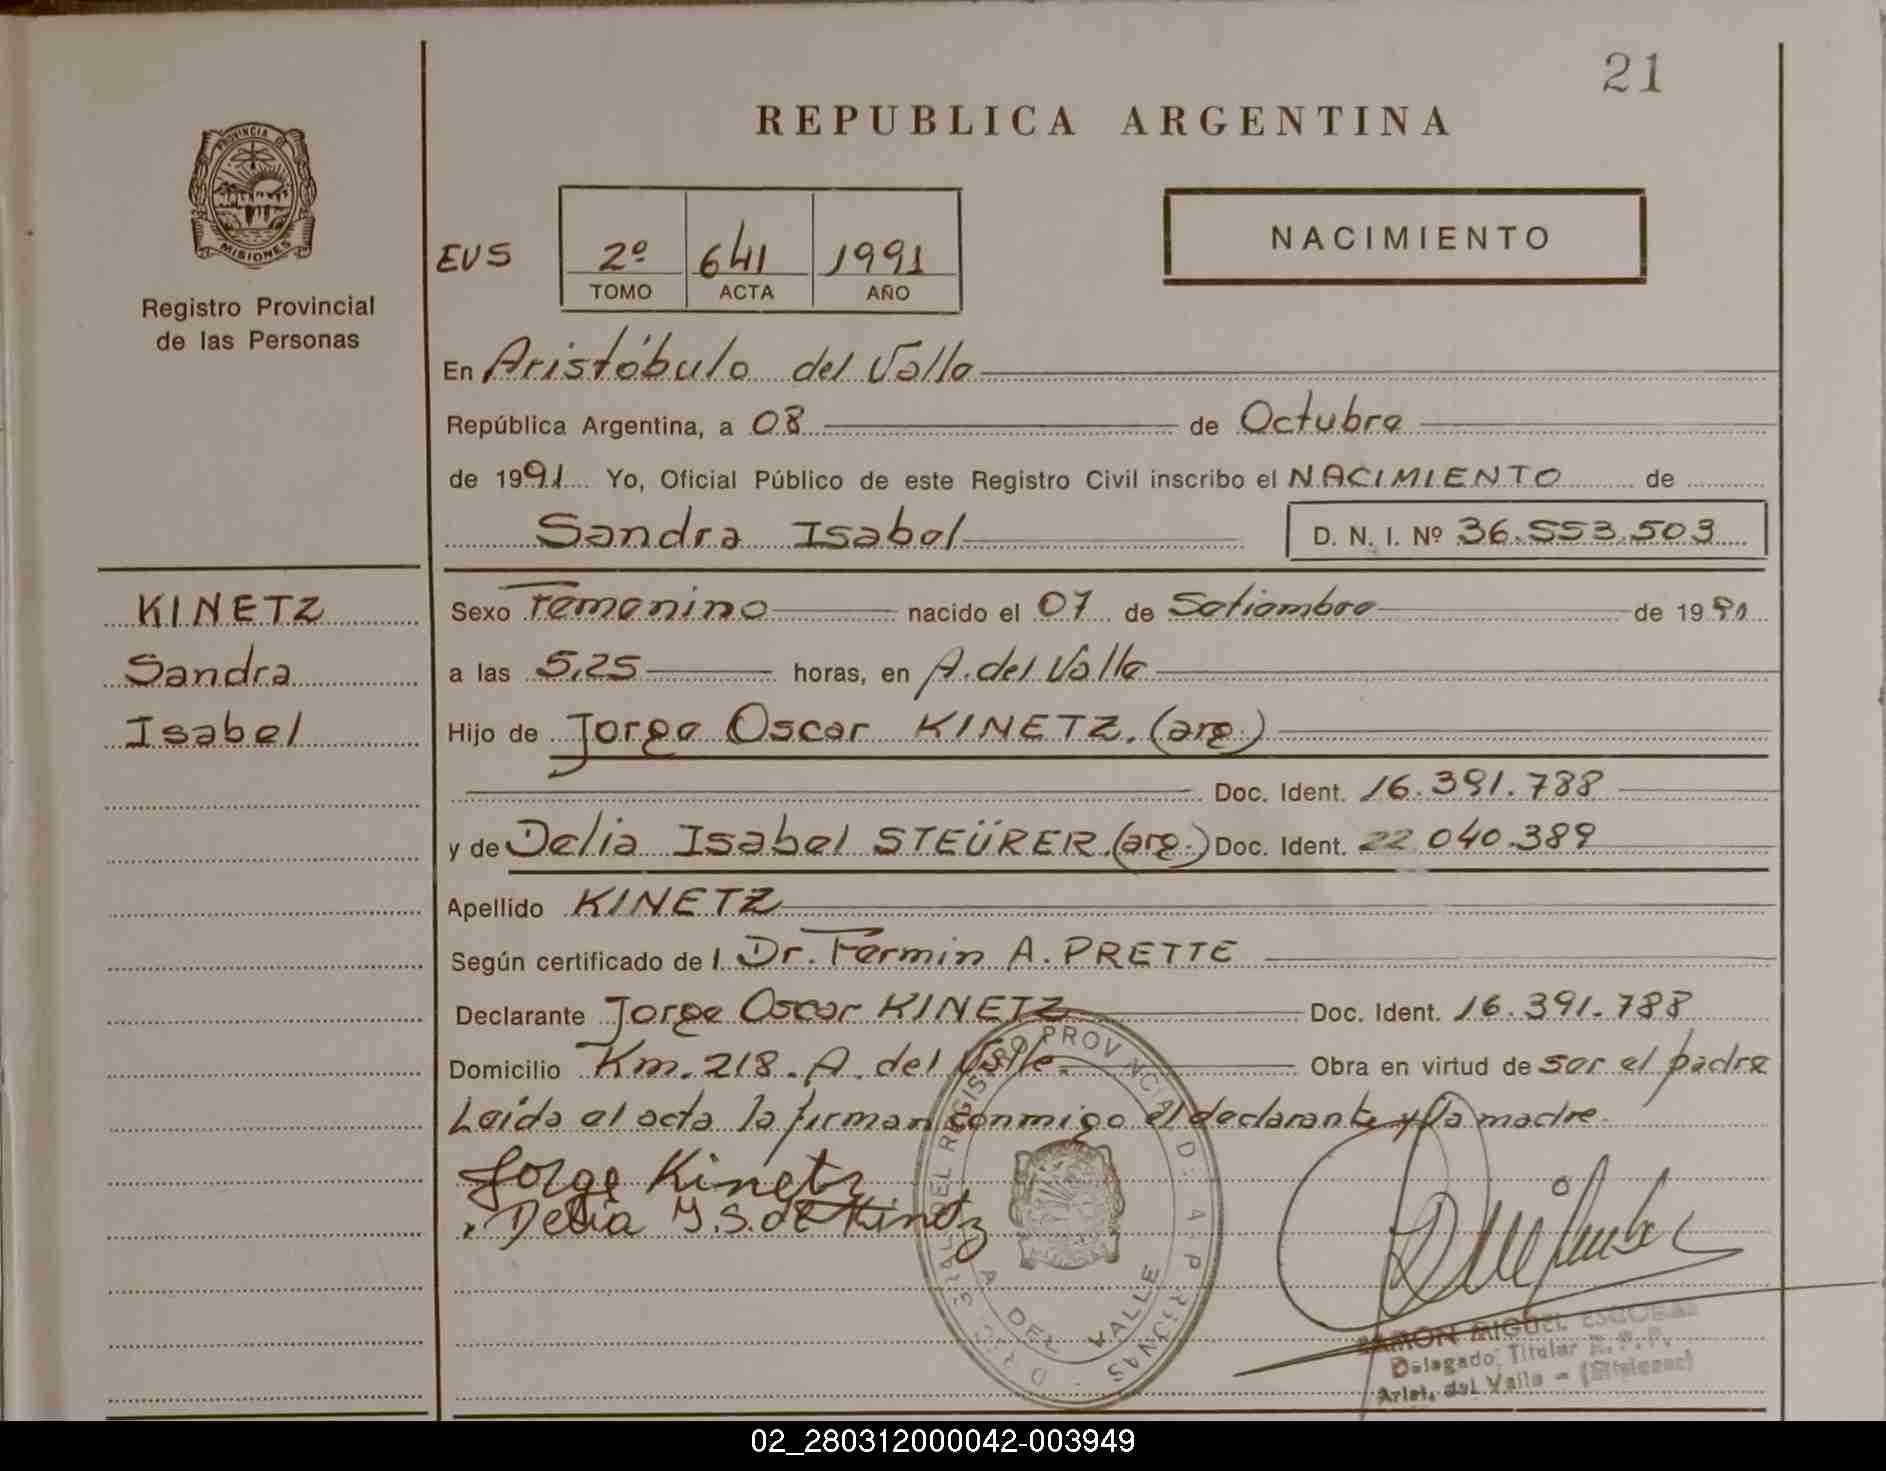 21
REPUBLICA ARGENTINA
PROVINCIA DE
MISIONES
Registro Provincial
de las Personas
EVS
2º 641 1991
TOMO ACTA AÑO
NACIMIENTO
En Aristóbulo del Valle
República Argentina, a 08 de Octubre
de 1991 Yo, Oficial Público de este Registro Civil inscribo el NACIMIENTO de
Sandra Isabel D. N. I. Nº 36.553.503
KINETZ
Sandra
Isabel
Sexo Femenino nacido el 07 de Setiembre de 1991
a las 5,25 horas, en A. del Valle
Hijo de Jorge Oscar KINETZ. (arg.)
Doc. Ident. 16.391.788
y de Delia Isabel STEÜRER.(arg.) Doc. Ident. 22 040.389
Apellido KINETZ
Según certificado de l Dr. Fermin A. PRETTE
Declarante Jorge Oscar KINETZ Doc. Ident. 16.391.788
Domicilio Km. 218. A. del Valle. Obra en virtud de ser el padre
Leída el acta la firman conmigo el declarante y la madre.
Jorge Kinetz
Delia Y.S. de Kinetz
DEL REGISTRO PROVINCIAL D
A DEL VALLE
RAMON MIGUEL ESCOBAR
Delegado Titular R.P.P.
Arist. del Valle - (Misiones)
02_280312000042-003949